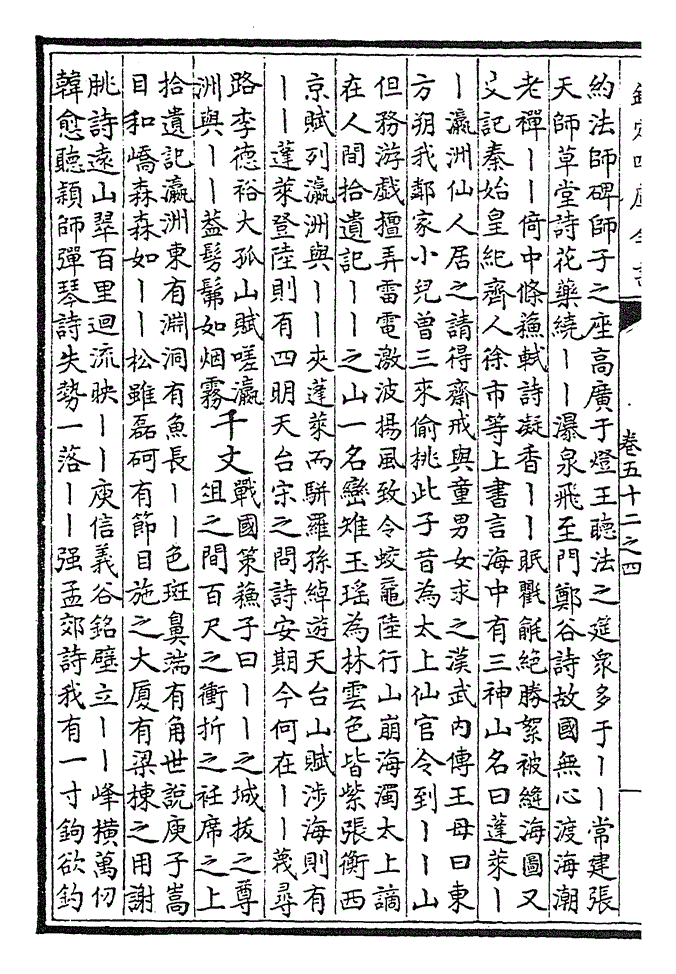 欽定四庫全書
卷五十二之四
約法師碑師子之座高廣于燈王聽法之筵衆多于丨丨常建張
天師草堂詩花藥繞丨丨瀑泉飛至門鄭谷詩故國無心渡海潮
老禪丨丨倚中條蘓軾詩凝香丨丨眠氍毹絶勝絮被縫海圖又
史記秦始皇紀齊人徐市等上書言海中有三神山名曰蓬萊丨
丨瀛洲仙人居之請得齋戒與童男女求之漢武内傳王母曰東
方朔我鄰家小兒曾三來偷桃此子昔為太上仙官令到丨丨山
但務游戲擅弄雷電激波揚風致令蛟鼉陸行山崩海濁太上謫
在人間拾遺記丨丨之山一名巒雉玉瑤為林雲色皆紫張衡西
京賦列瀛洲與丨丨夾蓬萊而駢羅孫綽遊天台山賦涉海則有
丨丨蓬萊登陸則有四明天台宋之問詩安期今何在丨丨蔑尋
路李德裕大孤山賦嗟瀛
洲與丨丨葢髣髴如烟霧
千丈
戰國策蘓子曰丨丨之城拔之尊
俎之間百尺之衝折之衽席之上
拾遺記瀛洲東有淵洞有魚長丨丨色斑鼻端有角世說庾子嵩
目和嶠森森如丨丨松雖磊砢有節目施之大厦有梁棟之用謝
朓詩遠山翠百里迴流映丨丨庾信義谷銘壁立丨丨峰橫萬仞
韓愈聽穎師彈琴詩失勢一落丨丨强孟郊詩我有一寸鉤欲釣